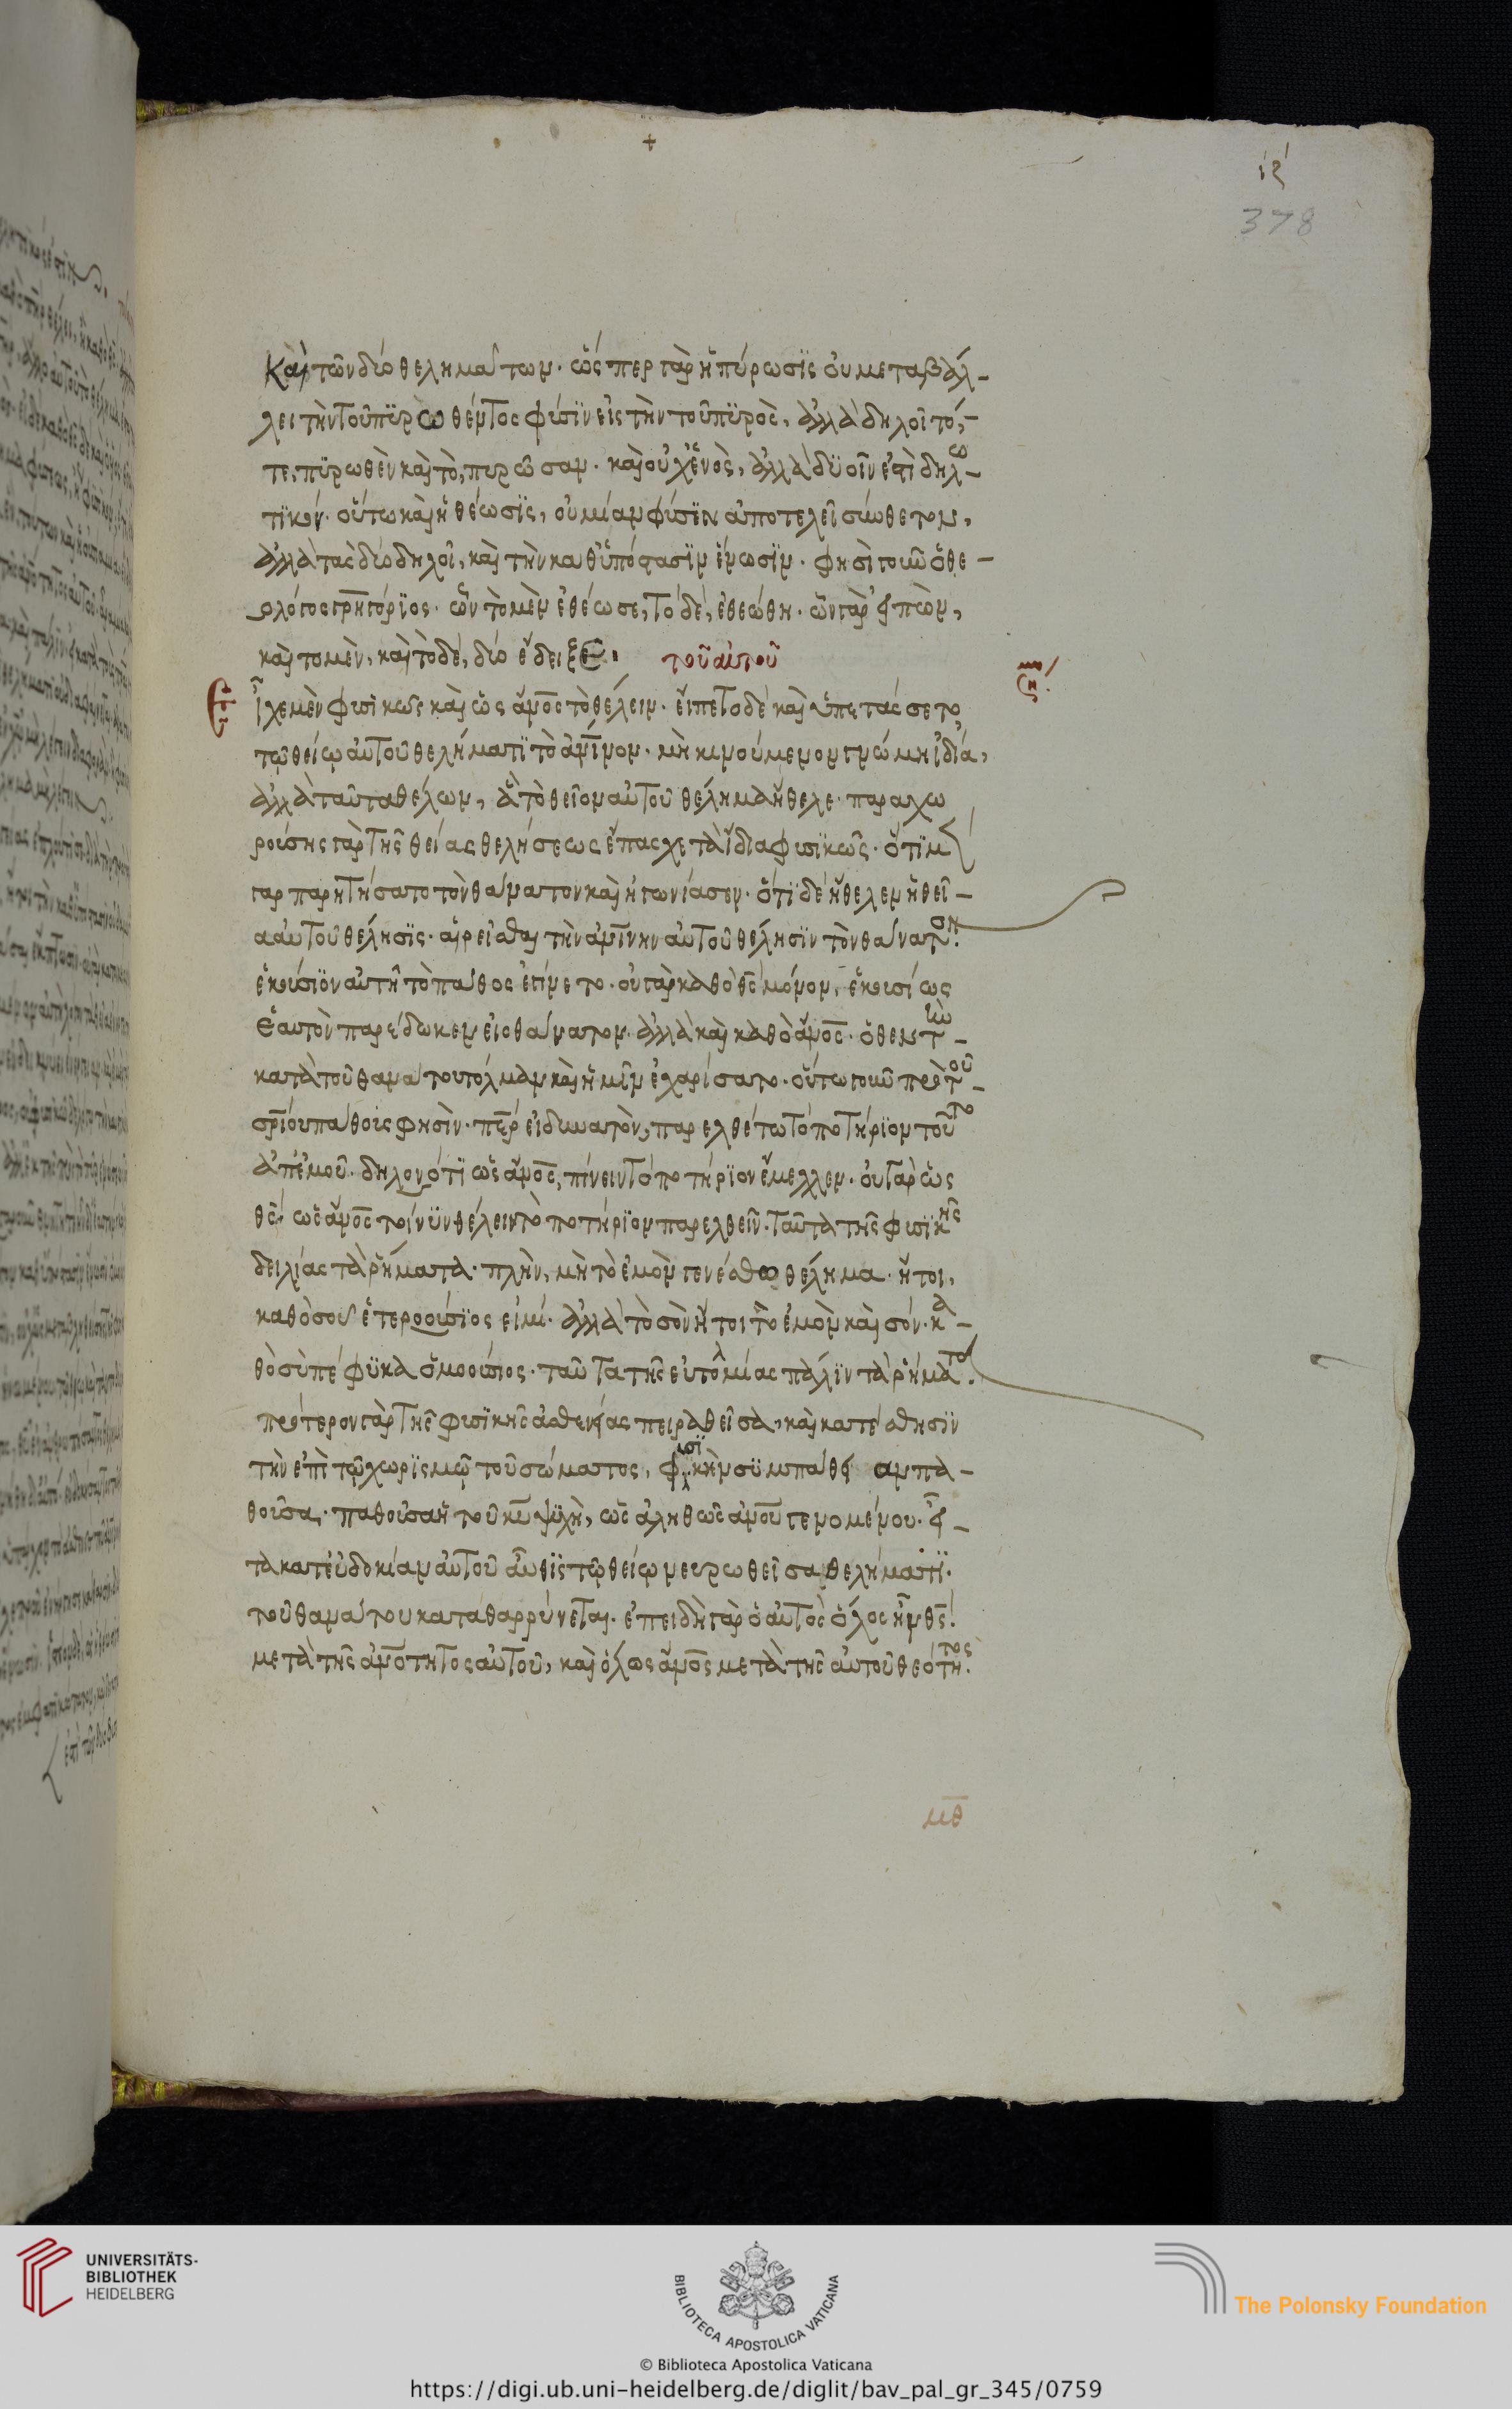 ιϛ
378
καὶ τῶν δύο θελημάτων· ὥσπερ γὰρ ἡ πύρωσϊς οὐ μεταβάλ-
λει τὴν τοῦ πϋρωθέντος φύσϊν εἰς τὴν τοῦ πϋρὸς, ἀλλὰ δηλοῖ τό,-
τε, πϋρωθὲν καὶ τὸ, πυρῶσαν· καὶ οὐχ ἑνὸς, ἀλλὰ δϋοῖν ἐστὶ δηλω-
τϊκόν· οὕτω καὶ ἡ θέωσϊς, οὐ μίαν φύσϊν ἀποτελεῖ σύνθετον,
ἀλλὰ τὰς δύο δηλοῖ, καὶ τὴν καθ' ὑπόστασϊν ἕνωσϊν· φησὶ γοῦν ὁ θε-
ολόγος γρηγόρϊος· ὧν τὸ μὲν ἐθέωσε, τὸ δὲ, ἐθεώθη· ὧν γὰρ εἰπὼν,
καὶ τὸ μὲν, καὶ τὸ δὲ, δύο ἔδειξεν· τοῦ αὐτοῦ
Εἶχε μὲν φυσϊκῶς καὶ ὡς ἄνος τὸ θέλειν· εἵπετο δὲ καὶ ὑπετάσσετο
τῷ θείῳ αὐτοῦ θελήματϊ τὸ ἀνϊνον· μὴ κινούμενον γνώμη ἰδία,
ἀλλὰ ταῦτα θέλων, ἃ τὸ θεῖον αὐτοῦ θέλημα ἤθελε· παραχω
ρούσης γὰρ τῆς θείας θελήσεως ἔπασχε τὰ ἴδια φυσϊκῶς· ὅτϊ μ
γαρ παρητήσατο τὸν θάνατον καὶ ἠγωνίασεν· ὅτϊ δὲ ἤθελεν ἡ θεί-
α αὐτοῦ θέλησϊς· αἱρεῖσθαι τὴν ἀνίνην αὐτοῦ θέλησϊν τὸν θάνατ.
ἑκούσϊον αὐτῆ τὸ πάθος ἐγίνετο· οὐ γὰρ καθὸ θς μόνον, ἑκουσίως
ἑαυτὸν παρέδωκεν εἰς θάνατον· ἀλλὰ καὶ καθὸ ἄνος· ὅθεν τὴν
κατὰ τοῦ θανάτου τόλμαν καὶ ἡμῖν ἐχαρίσατο· οὕτω γοῦν πρὸ τοῦ
σρίου πάθους φησὶν· περ εἰ δυνατὸν, παρελθέτω τὸ ποτήρϊον τοῦτο
ἀπ' ἐμοῦ· δηλονότϊ ὡς ἄνος, πίνειν τὸ ποτήρϊον ἔμελλεν· οὐ γὰρ ὡς
θς· ὡς ἄνος τοίνϋν θέλειν τὸ ποτήρϊον παρελθεῖν· ταῦτα τῆς φυσϊκῆς
δειλίας τὰ ῥήματα· πλὴν, μὴ τὸ ἐμὸν γενέσθω θέλημα· ἤτοι,
καθὸ σοῦ ἑτεροούσϊος εἰμί· ἀλλὰ τὸ σὸν ἤτοι τὸ ἐμὸν καὶ σόν· κα-
θὸ σὺ πέφϋκα ὁμοούσιος· ταῦτα τῆς εὐτολμίας πάλϊν τὰ ῥήματα.
πρότερον γὰρ τῆς φυσϊκῆς ἀσθενείας πειραθεῖσα
τὴν ἐπὶ τῷ χωρϊσμῷ τοῦ σώματος, φυσϊκὴν σϋμπάθειαν πα-
θοῦσα· παθοῦσα ἡ τοῦ κυ ψϋχὴ, ὡς ἀληθῶς ἀνου γενομένου· εἶ-
τα κατ' εὐδοκίαν αὐτοῦ αὖθϊς τῷ θείῳ νευρωθεῖσα θελήματϊ·
τοῦ θανάτου καταθαρρύνεται· ἐπειδὴ γὰρ ὁ αὐτὸς ὅλος ἦν θς
μετὰ τῆς ἀνοτητος αὐτοῦ, καὶ ὅλως ἄνος μετὰ τῆς αὐτοῦ θεότητος
μθ
UNIVERSITÄTS-
BIBLIOTHEK
HEIDELBERG
BIBLIOTECA APOSTOLICA VATICANA
The Polonsky Foundation
© Biblioteca Apostolica Vaticana
https://digi.ub.uni-heidelberg.de/diglit/bav_pal_gr_345/0759